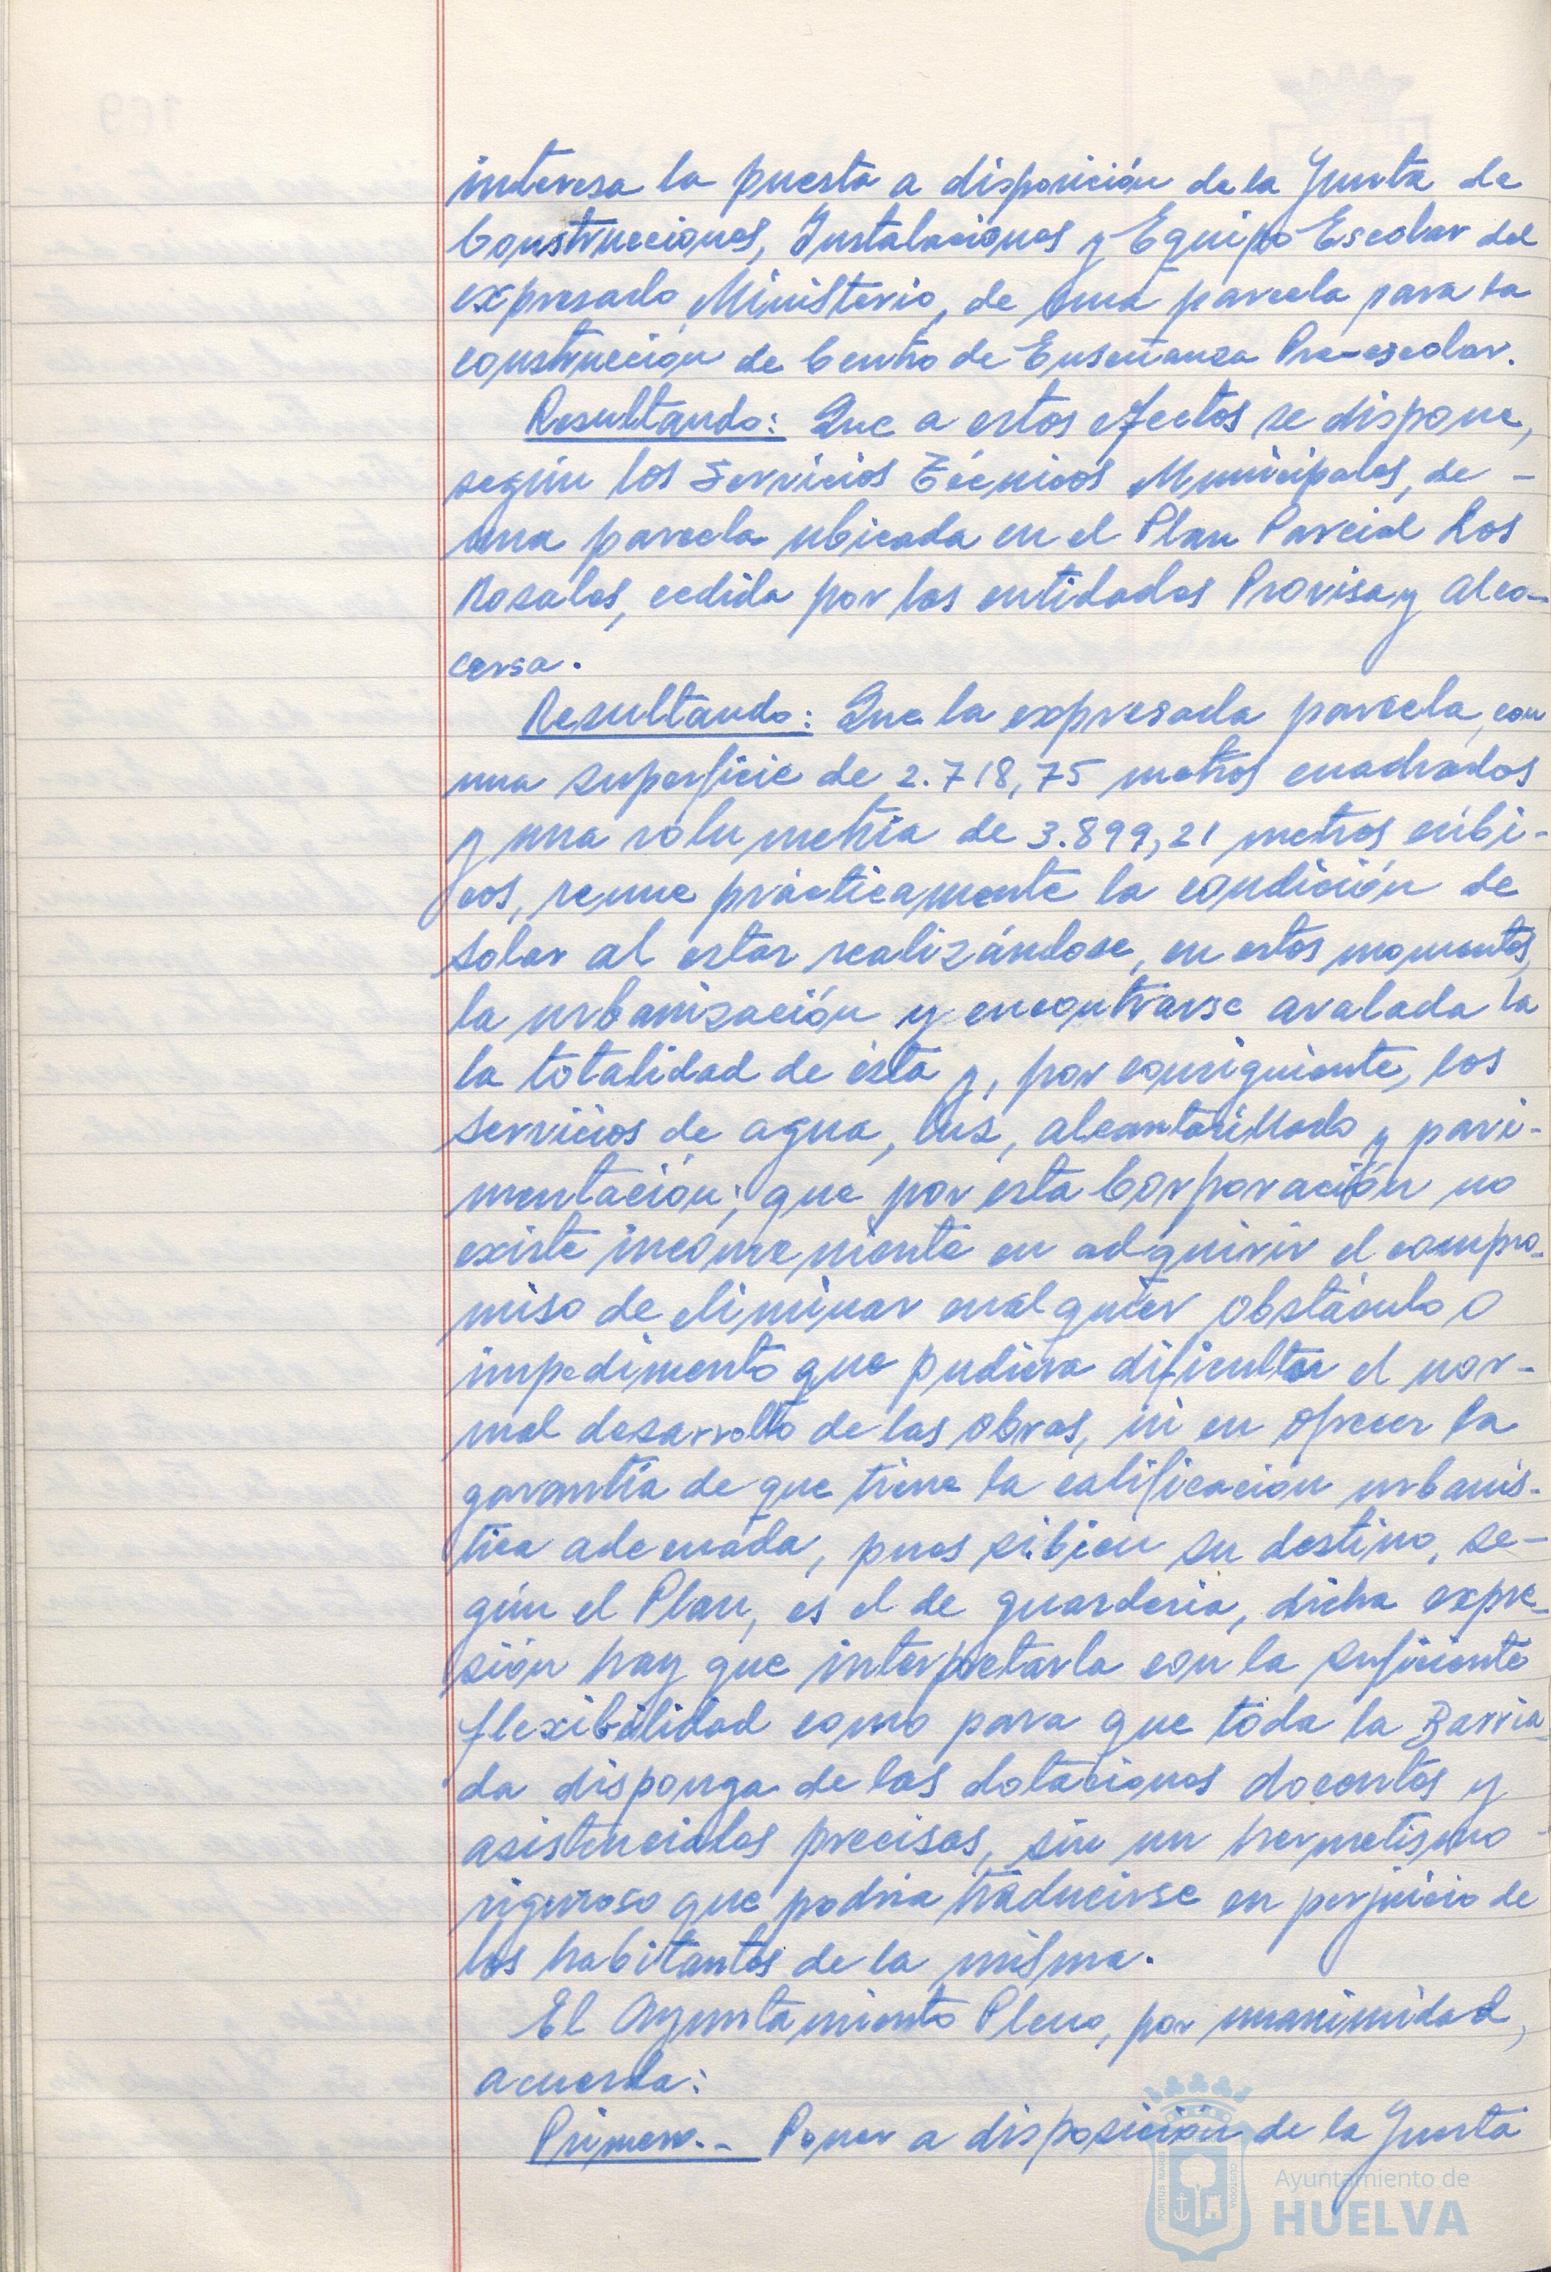 interesa la puesta a disposición de la Junta de
Construcciones, Instalaciones y Equipo Escolar del
expresado Ministerio, de una parcela para la
construcción de Centro de Enseñanza Pre-escolar.
Resultando: Que a estos efectos se dispone,
según los Servicios Técnicos Municipales, de -
una parcela ubicada en el Plan Parcial Los
Rosales, cedida por las entidades Provisa y Alco-
cersa.
Resultando: Que la expresada parcela, con
una superficie de 2.718,75 metros cuadrados
y una volumetría de 3.899,21 metros cúbi-
cos, reune prácticamente la condición de
solar al estar realizándose, en estos momentos,
la urbanización y encontrarse avalada la
la totalidad de ésta y, por consiguiente, los
servicios de agua, luz, alcantarillado y pavi-
mentación; que por esta Corporación no
existe inconveniente en adquirir el compro-
miso de eliminar cualquier obstáculo o
impedimento que pudiera dificultar el nor-
mal desarrollo de las obras, ni en ofrecer la
garantía de que tiene la calificación urbanís-
tica adecuada, pues si bien su destino, se-
gún el Plan, es el de guardería, dicha expre-
sión hay que interpretarla con la suficiente
flexibilidad como para que toda la Barria-
da disponga de las dotaciones docentes y
asistenciales precisas, sin un hermetismo -
riguroso que podría traducirse en perjuicio de
los habitantes de la misma.
El Ayuntamiento Pleno, por unanimidad,
acuerda:
Primero.- Poner a disposición de la Junta
Ayuntamiento de
HUELVA